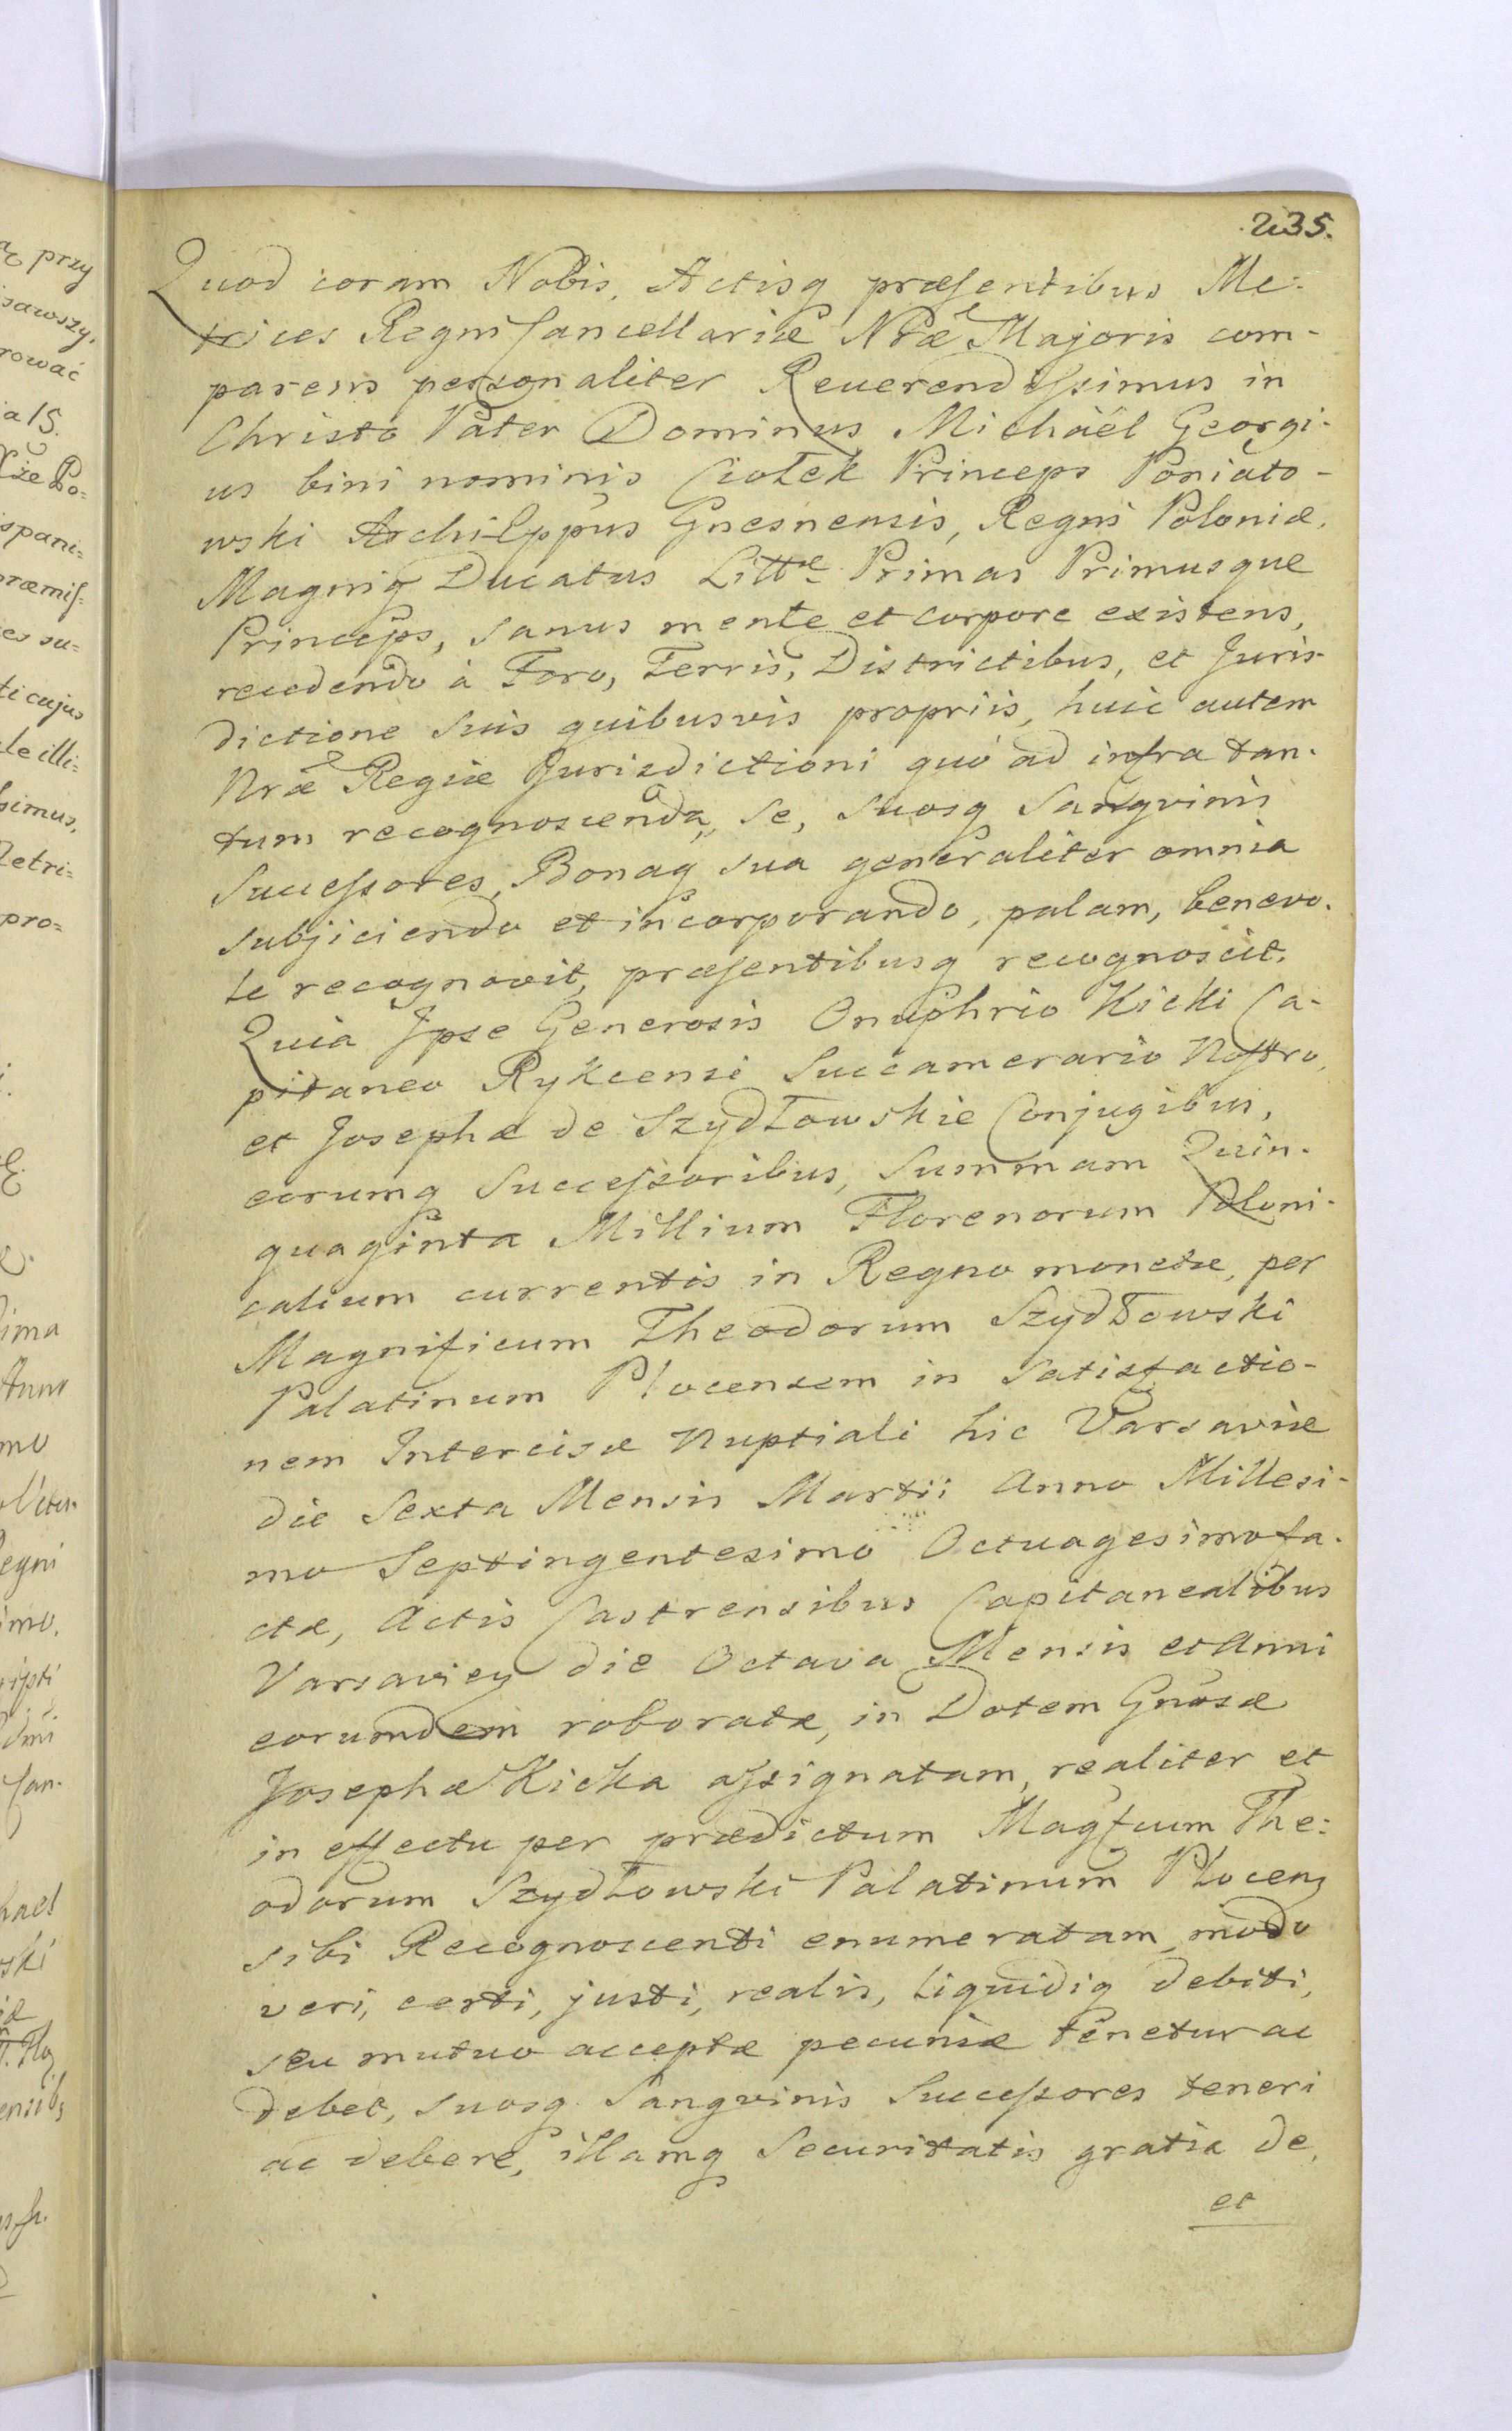 235.
Quod coram Nobis, Actisq præsentibus Me-
trices Regni Cancellariæ Nræ Majoris com-
parens personaliter Reuerendissimus in
Christo Pater Dominus Michaël Georgi-
us bini nominis Ciołek Princeps Poniato-
wski ArchiEppus Gnesnensis, Regni Poloniæ,
Magniq Ducatus Littæ Primas Primusque
Princeps, sanus mente et corpore existens,
recedendo à Foro, Terris, Districtibus, et Juris-
dictione suis quibusvis propriis, huic autem
Nræ Regiæ Jurisdictioni quò ad infra tan-
tum recognoscenda, se, suosq Sangvinis
Successores, Bonaq sua generaliter omnia
subjiciendo et incorporando, palam, benevo-
le recognovit, præsentibusq recognoscit.
Quia Ipse Generosis Onuphrio Kicki Ca-
pitaneo Rykcensi Succamerario Nostro,
et Josephæ de Szydłowskie Conjugibus,
eorumq Successoribus, Summam Quin-
quaginta Millium Florenorum Poloni-
calium currentis in Regno monetæ, per
Magnificum Theodorum Szydłowski
Palatinum Plocensem in Satisfactio-
nem Intercisæ Nuptiali hic Varsaviæ
die Sexta Mensis Martii Anno Millesi-
mo Septingentesimo Octuagesimo fa-
ctæ, Actis Castrensibus Capitanealibus
Varsavieņ die Octava Mensis et Anni
eorumdem roboratæ, in Dotem Gnosæ
Josephæ Kicka assignatam, realiter et
in effectu per prædictum Magfcum The-
odorum Szydłowski Palatinum Plocenş
sibi Recognoscenti enumeratam, modo
veri, certi, justi, realis, liquidiq debiti,
seu mutuo acceptæ pecuniæ tenetur ac
debet, suosq Sangvinis Successores teneri
ac debere, illamq Securitatis gratia de,
et